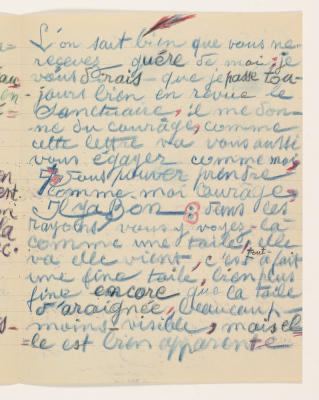 L'on sait bien que vous ne
recevez guère de moi, je
vous dirais que je passe tou=
jours bien en revue le
Sanctuaire, il me don=
ne du courage, comme
cette lettre va vous aussi
vous égayer comme moi
vous pouvez prendre
comme moi courage
Il y a Bon 8 dans ces
rayons vous y voyez là
comme une toile, elle
va elle vient, c'est tout à fait
une fine toile, bien plus
fine encore que la toile
d'araignée, beaucoup
moins visible, mais el
le est bien apparente